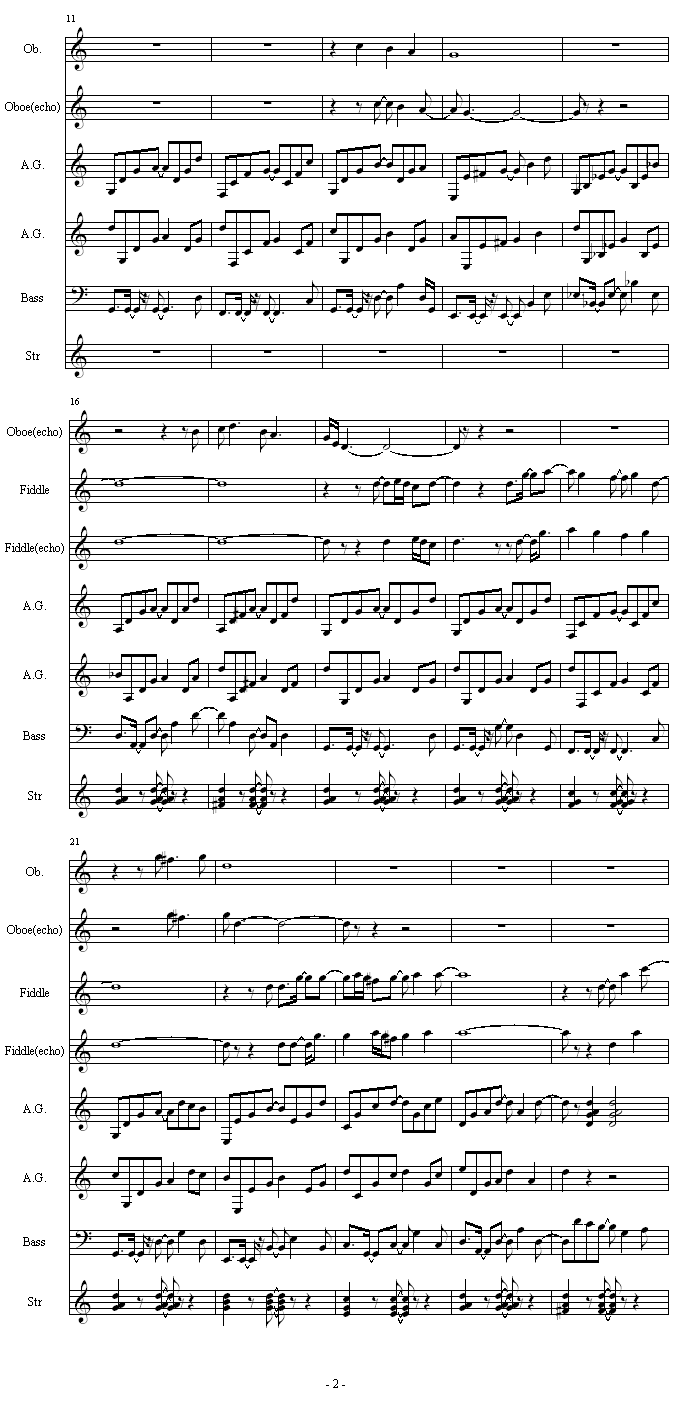 11
Ob.
Oboe(echo)
A.G.
A.G.
Bass
Str
16
Oboe(echo)
Fiddle
Fiddle(echo)
A.G.
A.G.
Bass
Str
21
Ob.
Oboe(echo)
Fiddle
Fiddle(echo)
A.G.
A.G.
Bass
Str
- 2 -